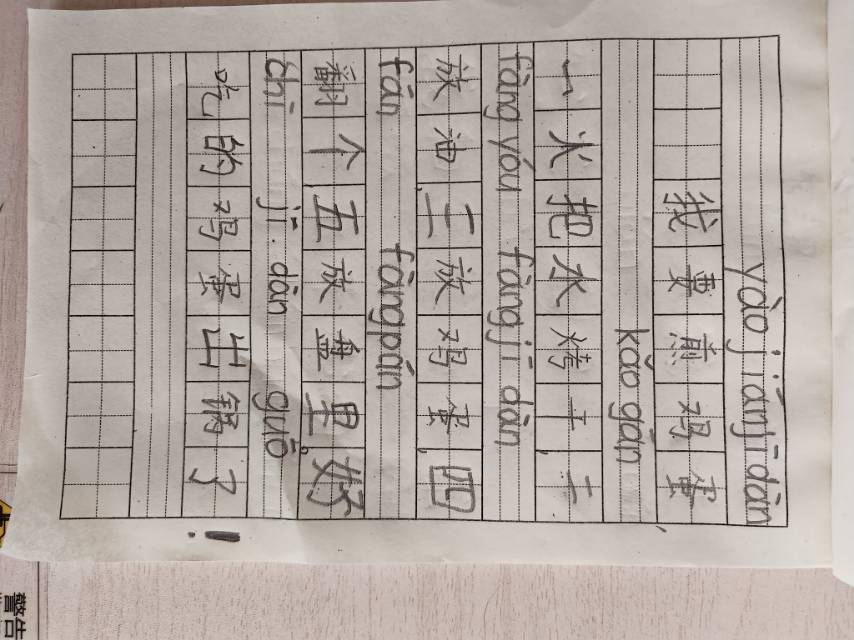 yào jiānjī dàn
我要煎鸡蛋,
kǎo gān
一火把水烤干,二
fàng yóu fàng jī dàn
放油,三放鸡蛋,四
fān fàng pán
翻个五放盘里。好
chī jī dàn guō
吃的鸡蛋出锅了!
警告